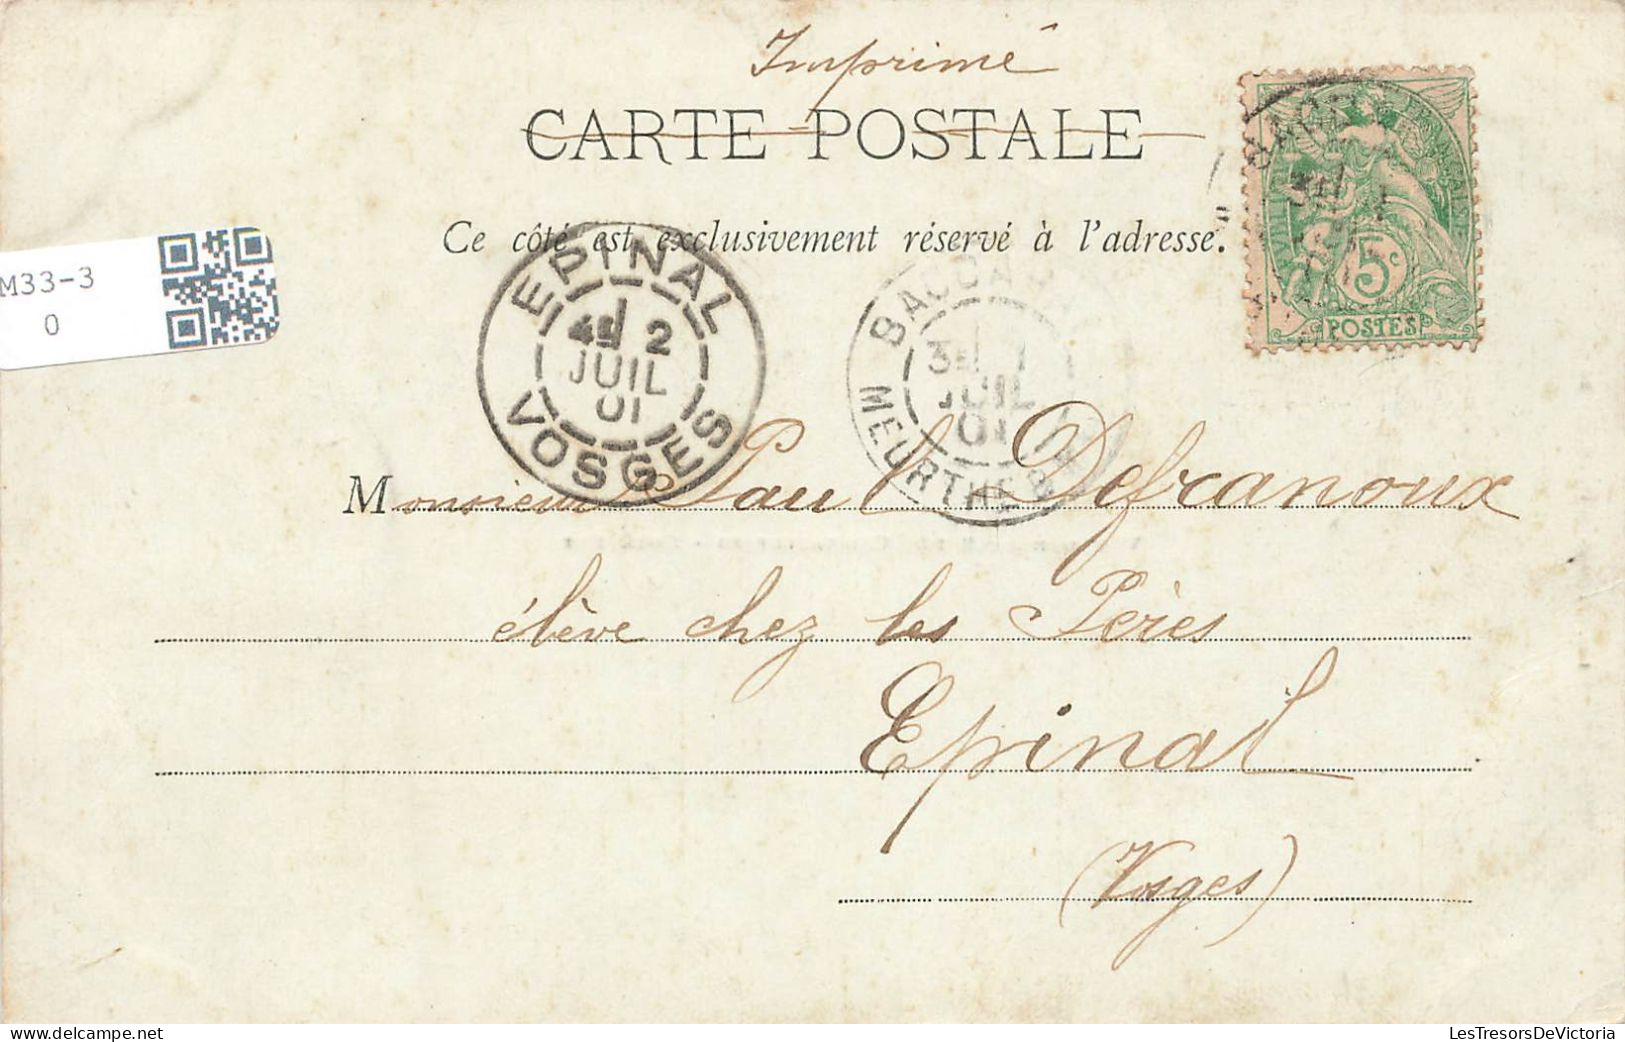 Imprimé
CARTE POSTALE
Ce côté est exclusivement réservé à l'adresse.
M33-3
0
EPINAL
4E 2
JUIL
01
VOSGES
BACCARAT
3E 1
JUIL
01
MEURTHE
5c
POSTES
Monsieur Paul Defranoux
élève chez les Pères
Epinal
(Vosges)
LesTresorsDeVictoria
www.delcampe.net